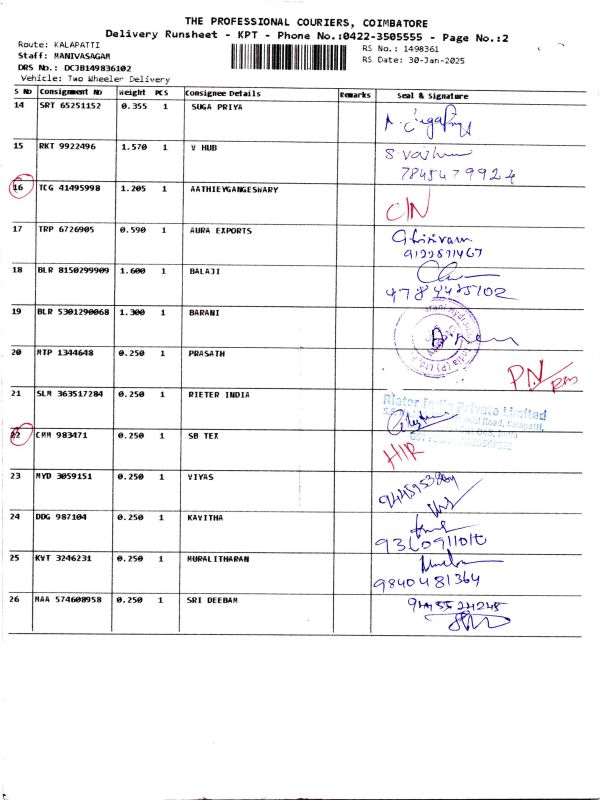 THE PROFESSIONAL COURIERS, COIMBATORE
Delivery Runsheet - KPT - Phone No.:0422-3505555 - Page No.:2
Route: KALAPATTI
RS No.: 1498361
Staff: MANIVASAGAM
RS Date: 30-Jan-2025
DRS No.: DCJB149836102
Vehicle: Two Wheeler Delivery
S No Consignment No Weight PCS Consignee Details Remarks Seal & Signature
14 SRT 65251152 0.355 1 SUGA PRIYA
15 RKT 9922496 1.570 1 V HUB
7845479924
16 TCG 41495998 1.205 1 AATHIEYGANGESWARY
C/N
17 TRP 6726905 0.590 1 AURA EXPORTS
18 BLR 8150299909 1.600 1 BALAJI
19 BLR 5301290068 1.300 1 BARANI
20 MTP 1344648 0.250 1 PRASATH
21 SLM 363517284 0.250 1 RIETER INDIA
Rieter India Private Limited
22 CMM 983471 0.250 1 SB TEX
23 MYD 3059151 0.250 1 VIYAS
24 DDG 987104 0.250 1 KAVITHA
25 KVT 3246231 0.250 1 MURALITHARAN
9840481364
26 MAA 574608958 0.250 1 SRI DEEBAM